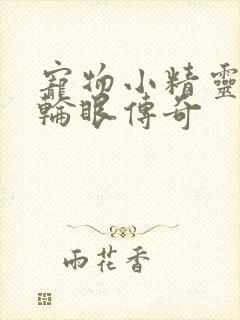 寵物小精靈
輪眼傳奇
雨花香